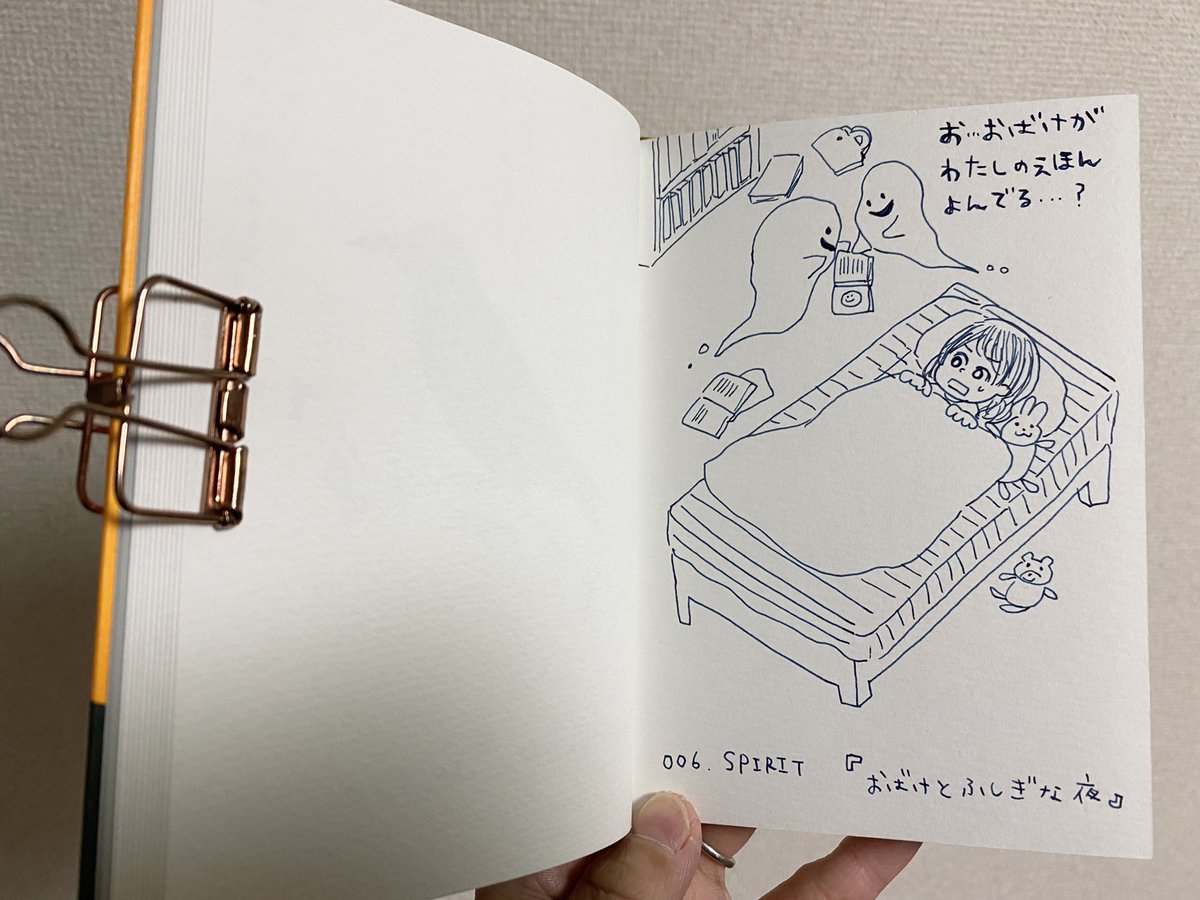 お…おばけが
わたしのえほん
よんでる…？
006. SPIRIT 『おばけとふしぎな夜』